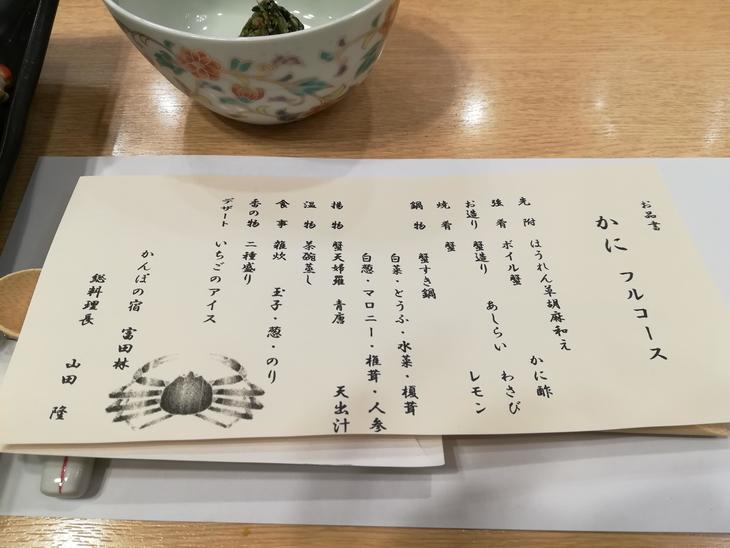 お品書
かに フルコース
先附 ほうれん草胡麻和え
強肴 ボイル蟹 かに酢
お造り 蟹造り あしらい わさび
焼肴 蟹 レモン
鍋物 蟹すき鍋
白菜・とうふ・水菜・榎茸
白葱・マロニー・椎茸・人参
揚物 蟹天婦羅 青唐 天出汁
温物 茶碗蒸し
食事 雑炊 玉子・葱・のり
香の物 二種盛り
デザート いちごのアイス
かんぽの宿 富田林
総料理長 山田 隆